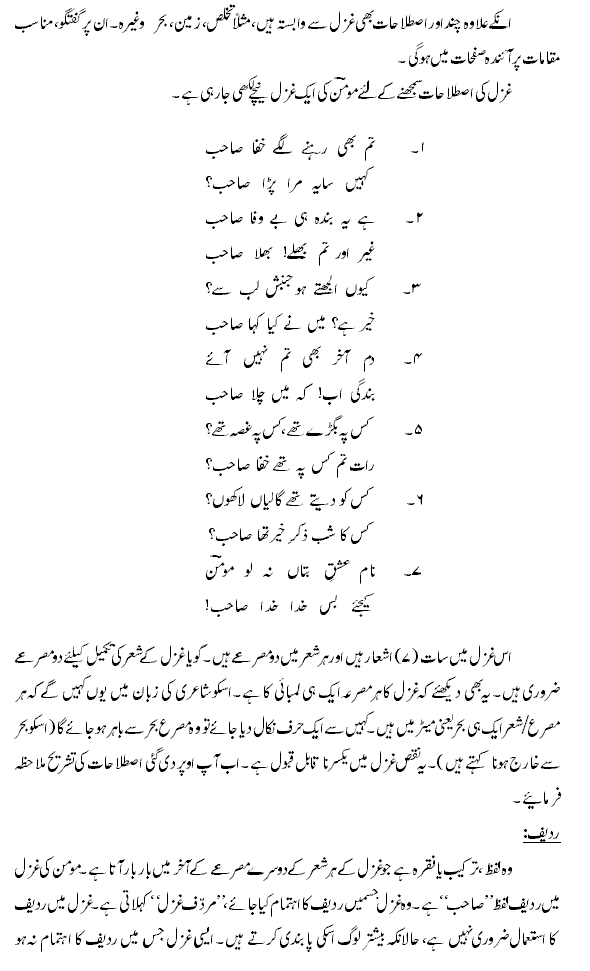 انکے علاوہ چند اور اصطلاحات بھی غزل سے وابستہ ہیں، مثلاً تخلص، زمین، بحر وغیرہ۔ ان پر گفتگو، مناسب
مقامات پر آئندہ صفحات میں ہوگی ۔
غزل کی اصطلاحات سمجھنے کے لئے مومنؔ کی ایک غزل نیچے لکھی جا رہی ہے ۔
۱۔ تم بھی رہنے لگے خفا صاحب
کہیں سایہ مرا پڑا صاحب؟
۲۔ ہے یہ بندہ ہی بے وفا صاحب
غیر اور تم بھلے! بھلا صاحب
۳۔ کیوں الجھتے ہو جنبشِ لب سے؟
خیر ہے؟ میں نے کیا کہا صاحب
۴۔ دمِ آخر بھی تم نہیں آئے
بندگی اب! کہ میں چلا صاحب
۵۔ کس پہ بگڑے تھے، کس پہ غصہ تھے؟
رات تم کس پہ تھے خفا صاحب؟
۶۔ کس کو دیتے تھے گالیاں لاکھوں؟
کس کا شب ذکرِ خیر تھا صاحب؟
۷۔ نام عشقِ بتاں نہ لو مومنؔ
کیجئے بس خدا خدا صاحب!
اس غزل میں سات (۷) اشعار ہیں اور ہر شعر میں دو مصرعے ہیں۔ گویا غزل کے شعر کی تکمیل کیلئے دو مصرعے
ضروری ہیں۔ یہ بھی دیکھئے کہ غزل کا ہر مصرعہ ایک ہی لمبائی کا ہے۔ اسکو شاعری کی زبان میں یوں کہیں گے کہ ہر
مصرع/شعر ایک ہی بحر یعنی میٹر میں ہیں۔ کہیں سے ایک حرف نکال دیا جائے تو وہ مصرع بحر سے باہر ہو جائے گا (اسکو بحر
سے خارج ہونا کہتے ہیں)۔ یہ نقص غزل میں یکسر نا قابل قبول ہے۔ اب آپ اوپر دی گئی اصطلاحات کی تشریح ملاحظہ
فرمائیے ۔
ردیف:
وہ لفظ، ترکیب یا فقرہ ہے جو غزل کے ہر شعر کے دوسرے مصرعے کے آخر میں بار بار آتا ہے۔ مومن کی غزل
میں ردیف لفظ ”صاحب“ ہے۔ وہ غزل جسمیں ردیف کا اہتمام کیا جائے، ”مردّف غزل“ کہلاتی ہے۔ غزل میں ردیف
کا استعمال ضروری نہیں ہے، حالانکہ بیشتر لوگ اسکی پابندی کرتے ہیں۔ ایسی غزل جس میں ردیف کا اہتمام نہ ہو